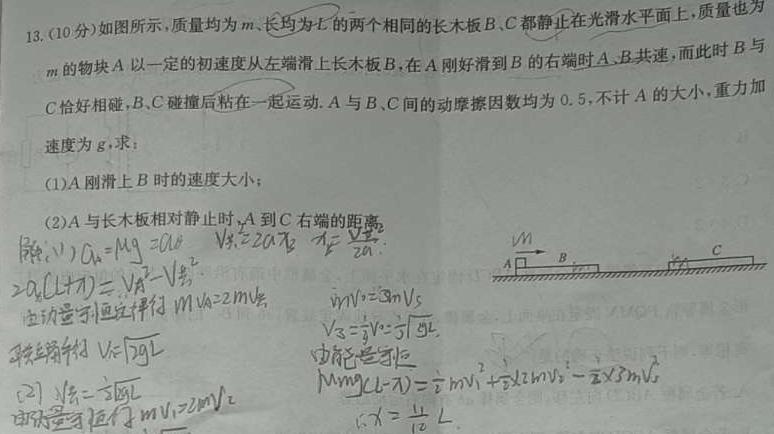 13.(10分)如图所示,质量均为m、长均为L的两个相同的长木板B、C都静止在光滑水平面上,质量也为
m的物块A以一定的初速度从左端滑上长木板B,在A刚好滑到B的右端时A、B共速,而此时B与
C恰好相碰,B、C碰撞后粘在一起运动.A与B、C间的动摩擦因数均为0.5,不计A的大小,重力加
速度为g,求:
(1)A刚滑上B时的速度大小;
(2)A与长木板相对静止时,A到C右端的距离.
解:(1) a_A=μg=a_B V共²=2ax_B x_B=V共²/2a.
2a(L+x)=V_A²-V共²
由动量守恒定律得 mV_A=2mV共
联立解得 V=√2gL
(2) V共=½√2gL
由动量守恒得 mV₁=2mV₂
mV₀=3mV₃
V₃=⅓V₀=⅓√2gL
由能量守恒
μmg(L-x)=½mV₁²+½×2mV₂²-½×3mV₃²
∴x=11/12 L
A B C